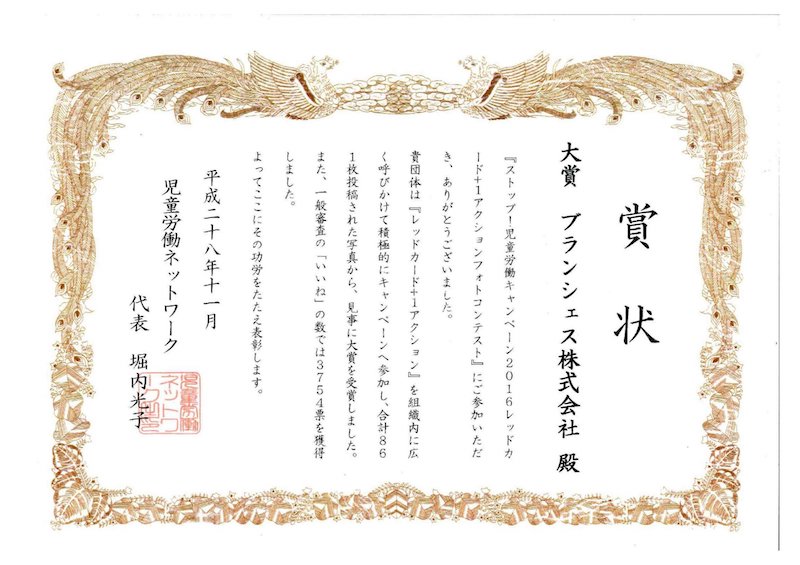 賞状
大賞 ブランシェス株式会社 殿
『ストップ！児童労働キャンペーン２０１６レッドカ
ード＋１アクションフォトコンテスト』にご参加いただ
き、ありがとうございました。
貴団体は『レッドカード＋１アクション』を組織内に広
く呼びかけて積極的にキャンペーンへ参加し、合計８６
１枚投稿された写真から、見事に大賞を受賞しました。
また、一般審査の「いいね」の数では３７５４票を獲得
しました。
よってここにその功労をたたえ表彰します。
平成二十八年十一月
児童労働ネットワーク
代表 堀内光子